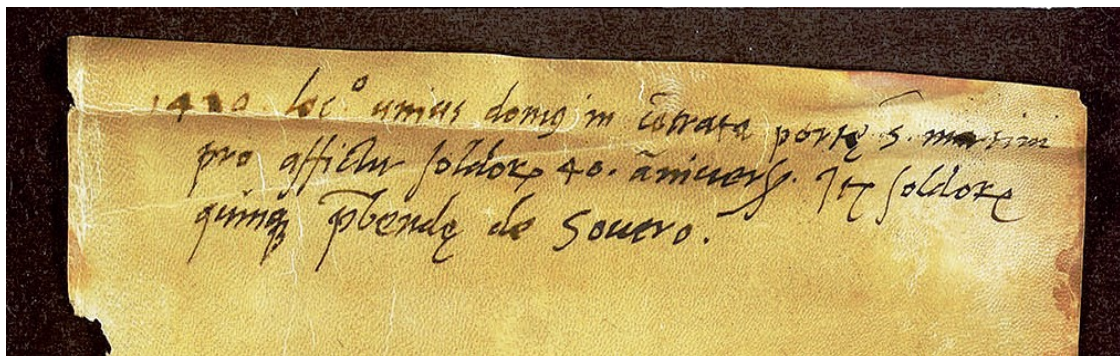 1420. loc.º unius domꝰ in c̄trata portę S. martini
pro affictu soldoꝝ 40. āniuerſ. Itꝫ soldoꝝ
quinqꝫ p̄bendę de Souero.